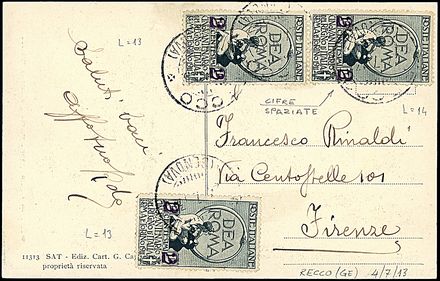 L=13
POSTE ITALIANE
DEA
ROMA
2
POSTE ITALIANE
DEA
ROMA
2
(GENOVA)
RECCO
CIFRE
SPAZIATE
L=14
Saluti cari
Francesco Rinaldi
Via Centostelle 101
Firenze
L=13
(GENOVA)
POSTE ITALIANE
DEA
ROMA
2
11313 SAT - Ediz. Cart. G. Ca
proprietà riservata
RECCO (GE) 4/7/13